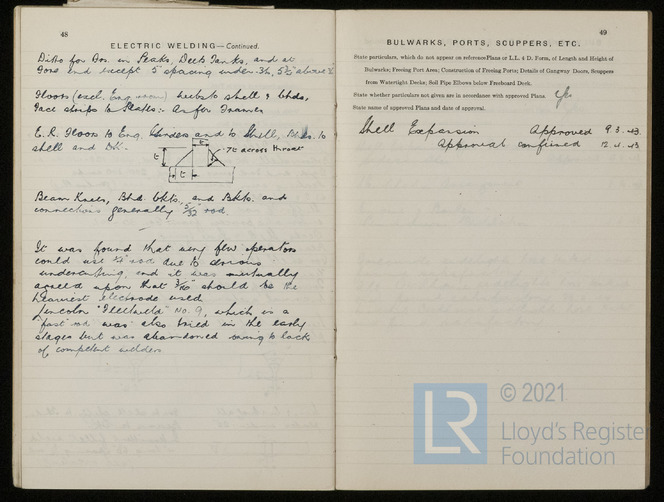 48
ELECTRIC WELDING—Continued.
Ditto for Frs. in Peaks, Deep Tanks, and at
Fore end except 5" spacing under
Floors (excl. Eng. room) webs to shell & bhds,
Face strips to Floors: As for Frames
E.R. Floors to Eng. Girders and to Shell, Bhds. to
shell and Dk.
t
·7t across throat
t
t
Beam Knees, Bhd. bkts. and Bkts. and
connections generally 5/32" rod.
It was found that very few operators
could use 1/4" rod due to serious
undercutting, and it was mutually
agreed upon that 3/16" should be the
heaviest electrode used
Lincoln "Fleetweld" No. 9, which is a
"fast" rod was also tried in the early
stages but was abandoned owing to lack
of competent welders
49
BULWARKS, PORTS, SCUPPERS, ETC.
State particulars, which do not appear on reference Plans or L.L. 4 D. Form, of Length and Height of
Bulwarks; Freeing Port Area; Construction of Freeing Ports; Details of Gangway Doors, Scuppers
from Watertight Decks; Soil Pipe Elbows below Freeboard Deck.
State whether particulars not given are in accordance with approved Plans. Yes
State names of approved Plans and date of approval.
Shell Expansion Approved 9.3.43
Approval confirmed 12.4.43
LR
© 2021
Lloyd's Register
Foundation